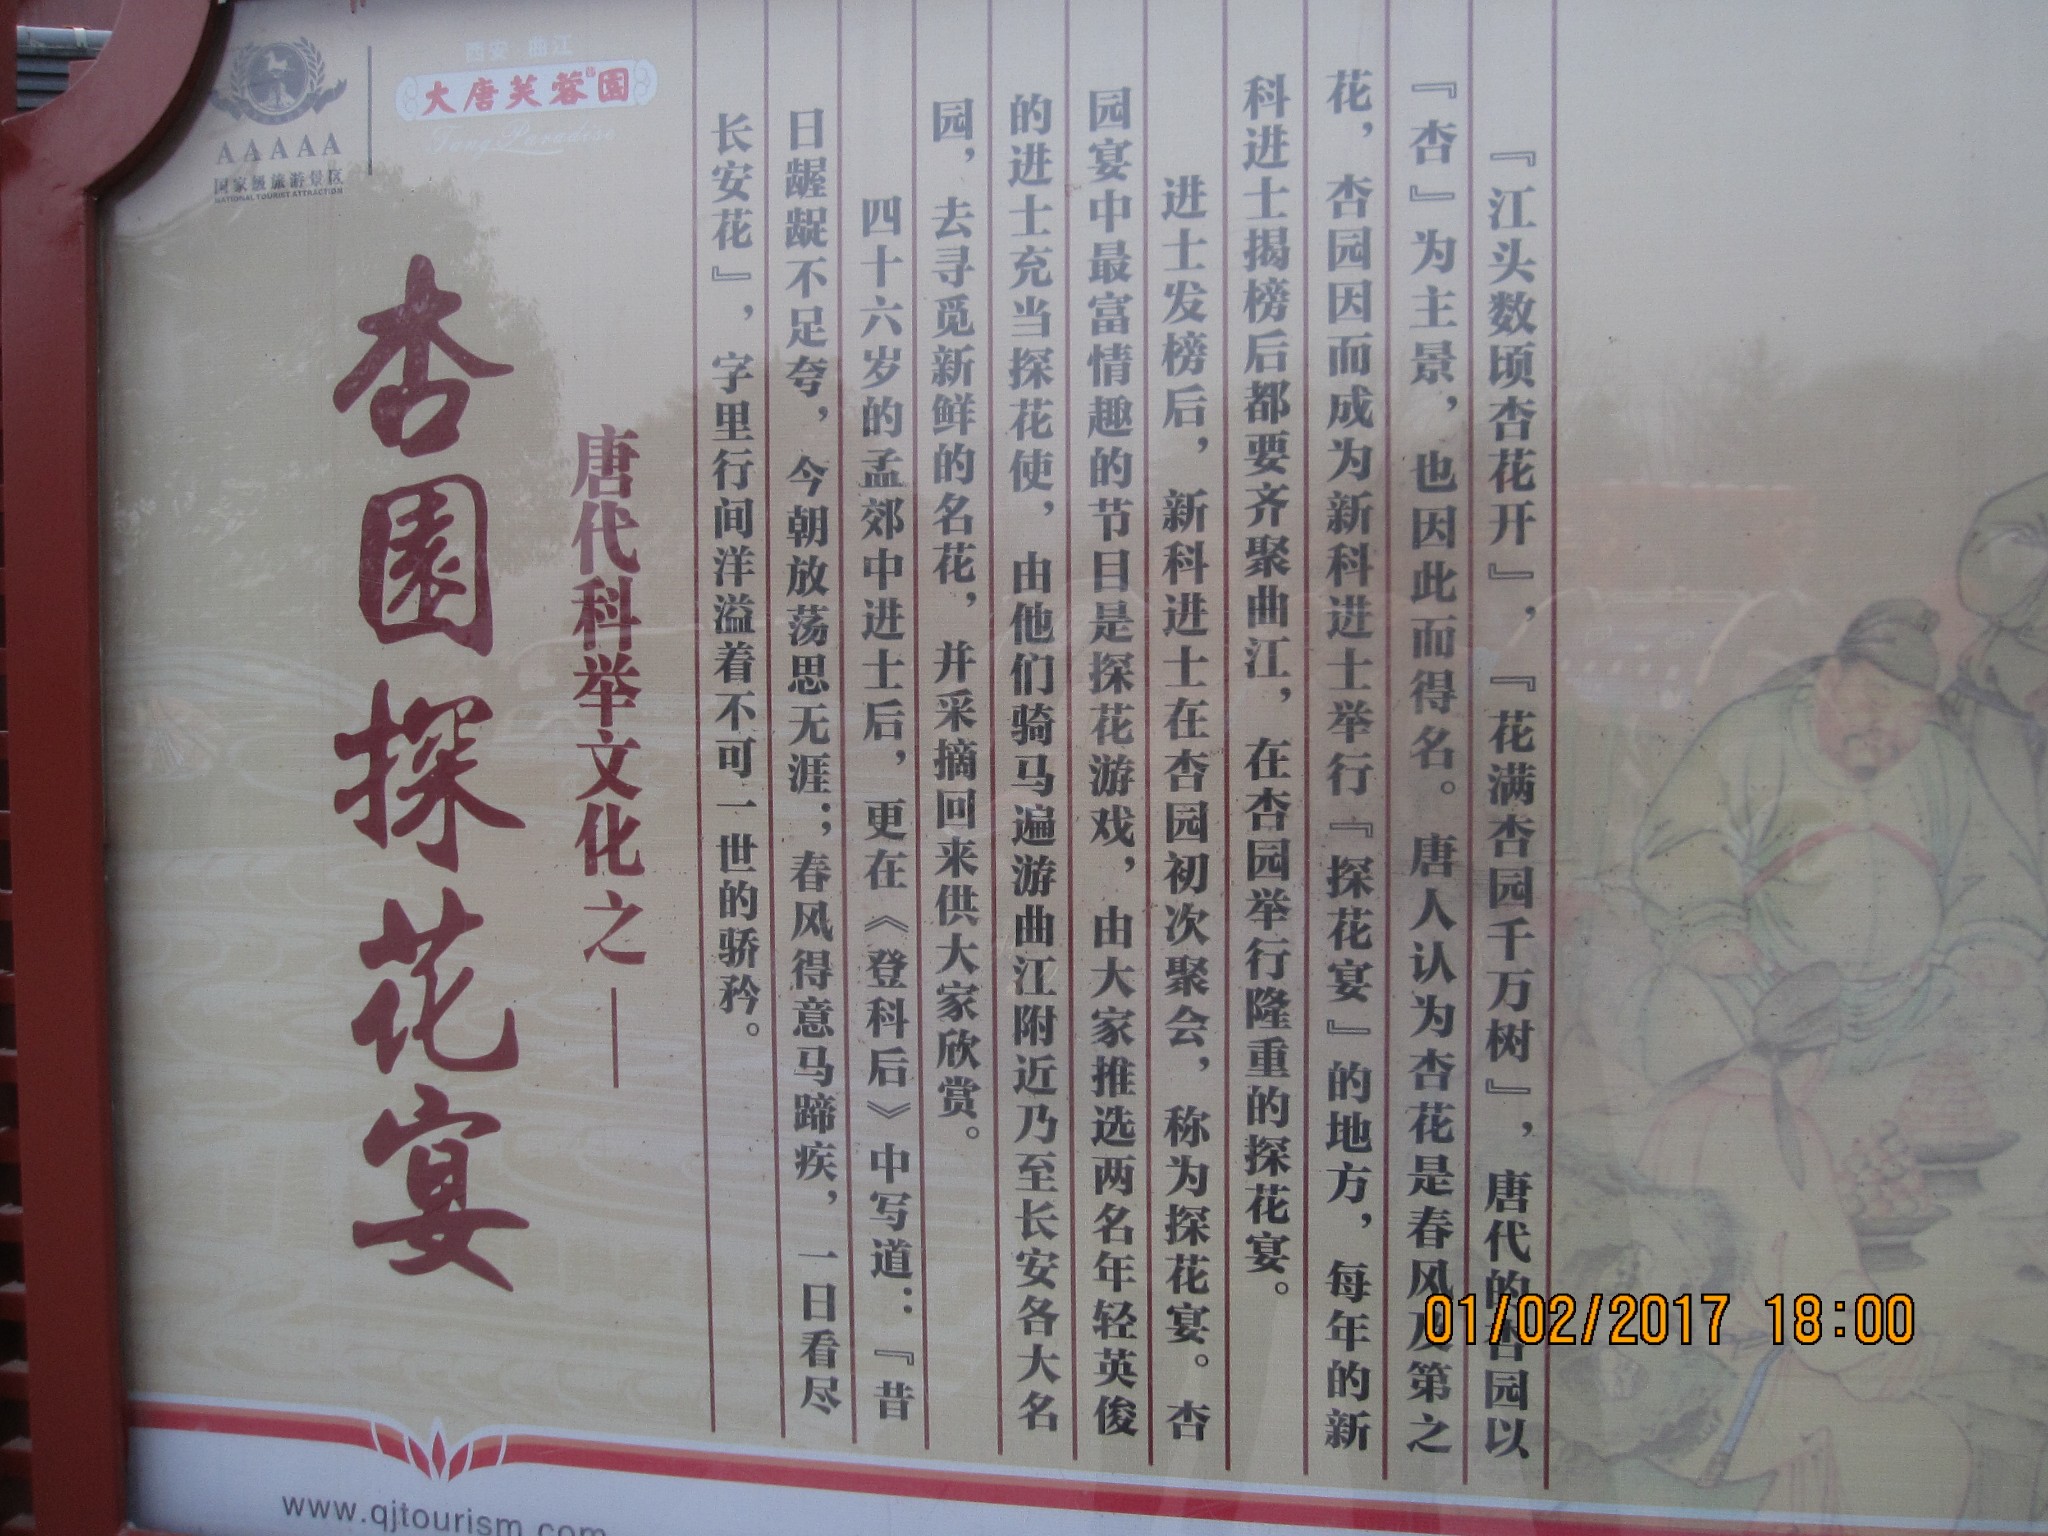 西安 曲江
大唐芙蓉園
Tang Paradise
AAAAA
国家级旅游景区
NATIONAL TOURIST ATTRACTION
杏園探花宴
唐代科举文化之——
『江头数顷杏花开』，『花满杏园千万树』，唐代的杏园以
『杏』为主景，也因此而得名。唐人认为杏花是春风及第之
花，杏园因而成为新科进士举行『探花宴』的地方，每年的新
科进士揭榜后都要齐聚曲江，在杏园举行隆重的探花宴。
进士发榜后，新科进士在杏园初次聚会，称为探花宴。杏
园宴中最富情趣的节日是探花游戏，由大家推选两名年轻英俊
的进士充当探花使，由他们骑马遍游曲江附近乃至长安各大名
园，去寻觅新鲜的名花，并采摘回来供大家欣赏。
四十六岁的孟郊中进士后，更在《登科后》中写道：『昔
日龌龊不足夸，今朝放荡思无涯；春风得意马蹄疾，一日看尽
长安花』，字里行间洋溢着不可一世的骄矜。
www.qjtourism.com
01/02/2017 18:00